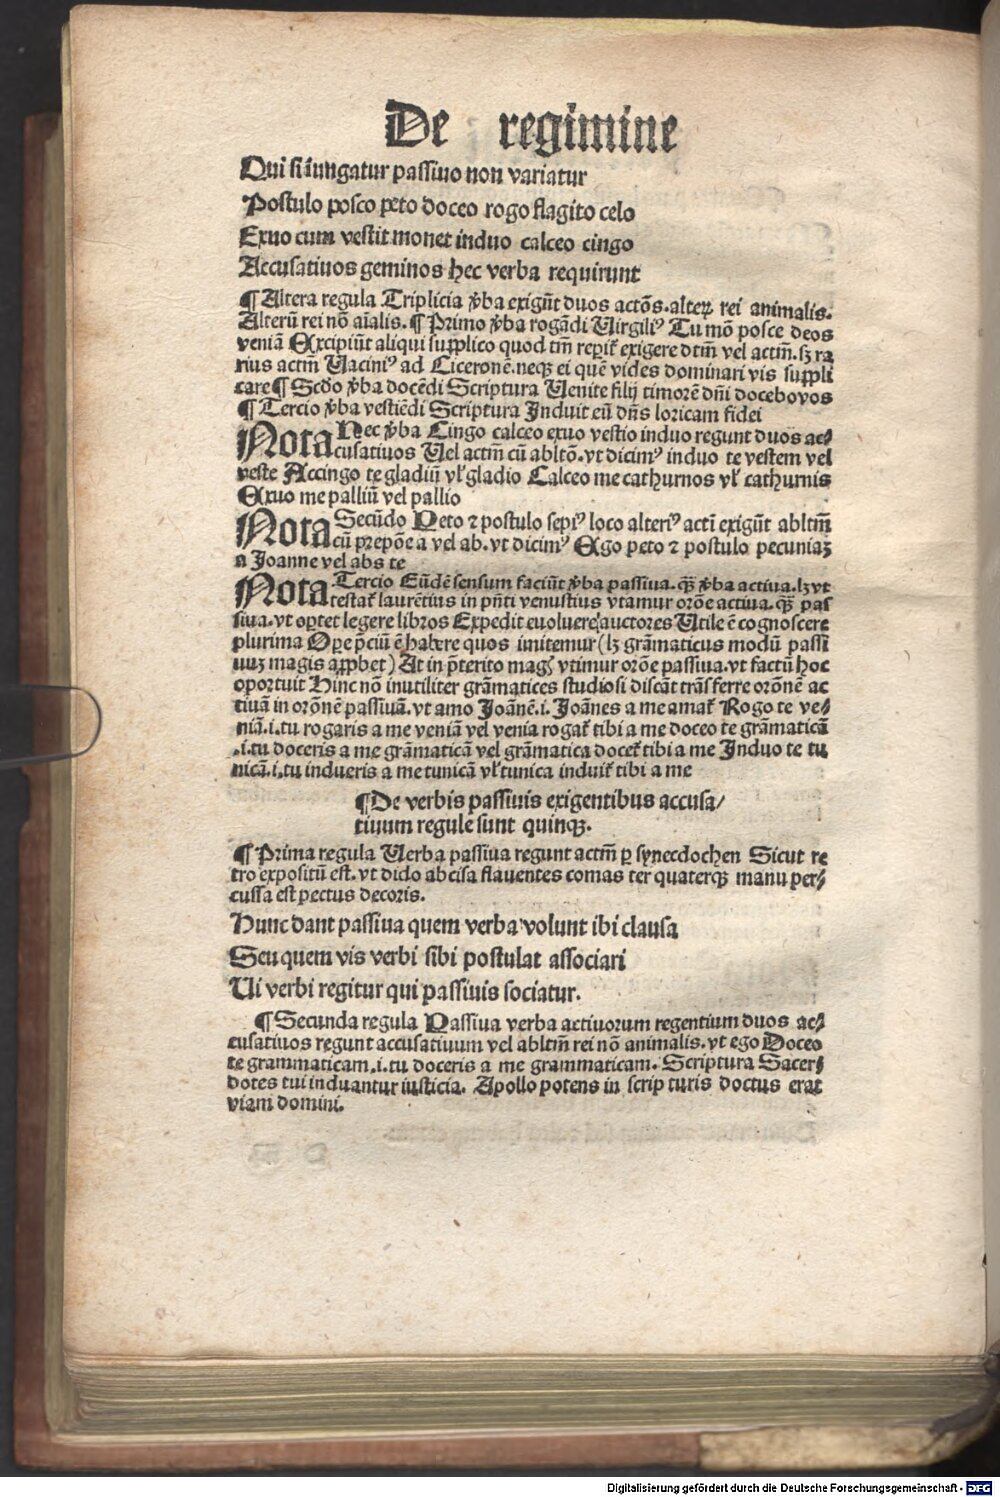 De regimine
Qui si iungatur passiuo non variatur
Postulo posco peto doceo rogo flagito celo
Exuo cum vestit monet induo calceo cingo
Accusatiuos geminos hec verba requirunt
¶ Altera regula Triplicia v̓ba exigūt duos actōs. alteꝝ rei animalis.
Alterū rei nō aīalis. ¶ Primo v̓ba rogādi Uirgiliꝰ Tu mō posce deos
veniā Excipiūt aliqui supplico quod tm̄ reꝑit̉ exigere dtm̄ vel actm̄. sꝫ ra
rius actm̄ Uaciniꝰ ad Ciceronē. neqꝫ ei quē vides dominari vis suppli
care ¶ Scd̄o v̓ba docēdi Scriptura Uenite filij timorē dn̄i docebo vos
¶ Tercio v̓ba vestiēdi Scriptura Induit eū dn̄s loricam fidei
Nota Hec v̓ba Cingo calceo exuo vestio induo regunt duos ac⸗
cusatiuos Uel actm̄ cū abltō. vt dicimꝰ induo te vestem vel
veste Accingo te gladiū vl̓ gladio Calceo me cathurnos vl̓ cathurnis
Exuo me palliū vel pallio
Nota Secūdo Peto ⁊ postulo sepiꝰ loco alteriꝰ actī exigūt abltm̄
cū prepōe a vel ab. vt dicimꝰ Ego peto ⁊ postulo pecuniaꝫ
a Joanne vel abs te
Nota Tercio Eūdē sensum faciūt v̓ba passiua. qꝫ̄ v̓ba actiua. lꝫ vt
testat̉ laurētius in pn̄ti venustius vtamur orōe actiua. qꝫ̄ pas
siua. vt oꝑtet legere libros Expedit euoluere auctores Utile ē cognoscere
plurima Oꝑe p̄ciū ē habere quos imitemur (lꝫ grāmaticus modū passi
uuꝫ magis apꝓbet) At in p̄terito magꝭ vtimur orōe passiua. vt factū hoc
oportuit Hinc nō inutiliter grāmatices studiosi discāt trāsferre orōnē ac
tiuā in orōnē passiuā. vt amo Joānē .i. Joānes a me amat̉ Rogo te ve⸗
niā .i. tu rogaris a me veniā vel venia rogat̉ tibi a me doceo te grāmaticā
.i. tu doceris a me grāmaticā vel grāmatica docet̉ tibi a me Induo te tu
nicā .i. tu indueris a me tunicā vl̓ tunica induit̉ tibi a me
¶ De verbis passiuis exigentibus accusa/
tiuum regule sunt quinqꝫ.
¶ Prima regula Uerba passiua regunt actm̄ ꝑ synecdochen Sicut re
tro expositū est. vt dido abcisa flauentes comas ter quaterqꝫ manu per⸗
cussa est pectus decoris.
Hunc dant passiua quem verba volunt ibi clausa
Seu quem vis verbi sibi postulat associari
Ui verbi regitur qui passiuis sociatur.
¶ Secunda regula Passiua verba actiuorum regentium duos ac⸗
cusatiuos regunt accusatiuum vel abltm̄ rei nō animalis. vt ego Doceo
te grammaticam .i. tu doceris a me grammaticam. Scriptura Sacer⸗
dotes tui induantur iusticia. Apollo potens in scrip turis doctus erat
viam domini.
Digitalisierung gefördert durch die Deutsche Forschungsgemeinschaft - DFG